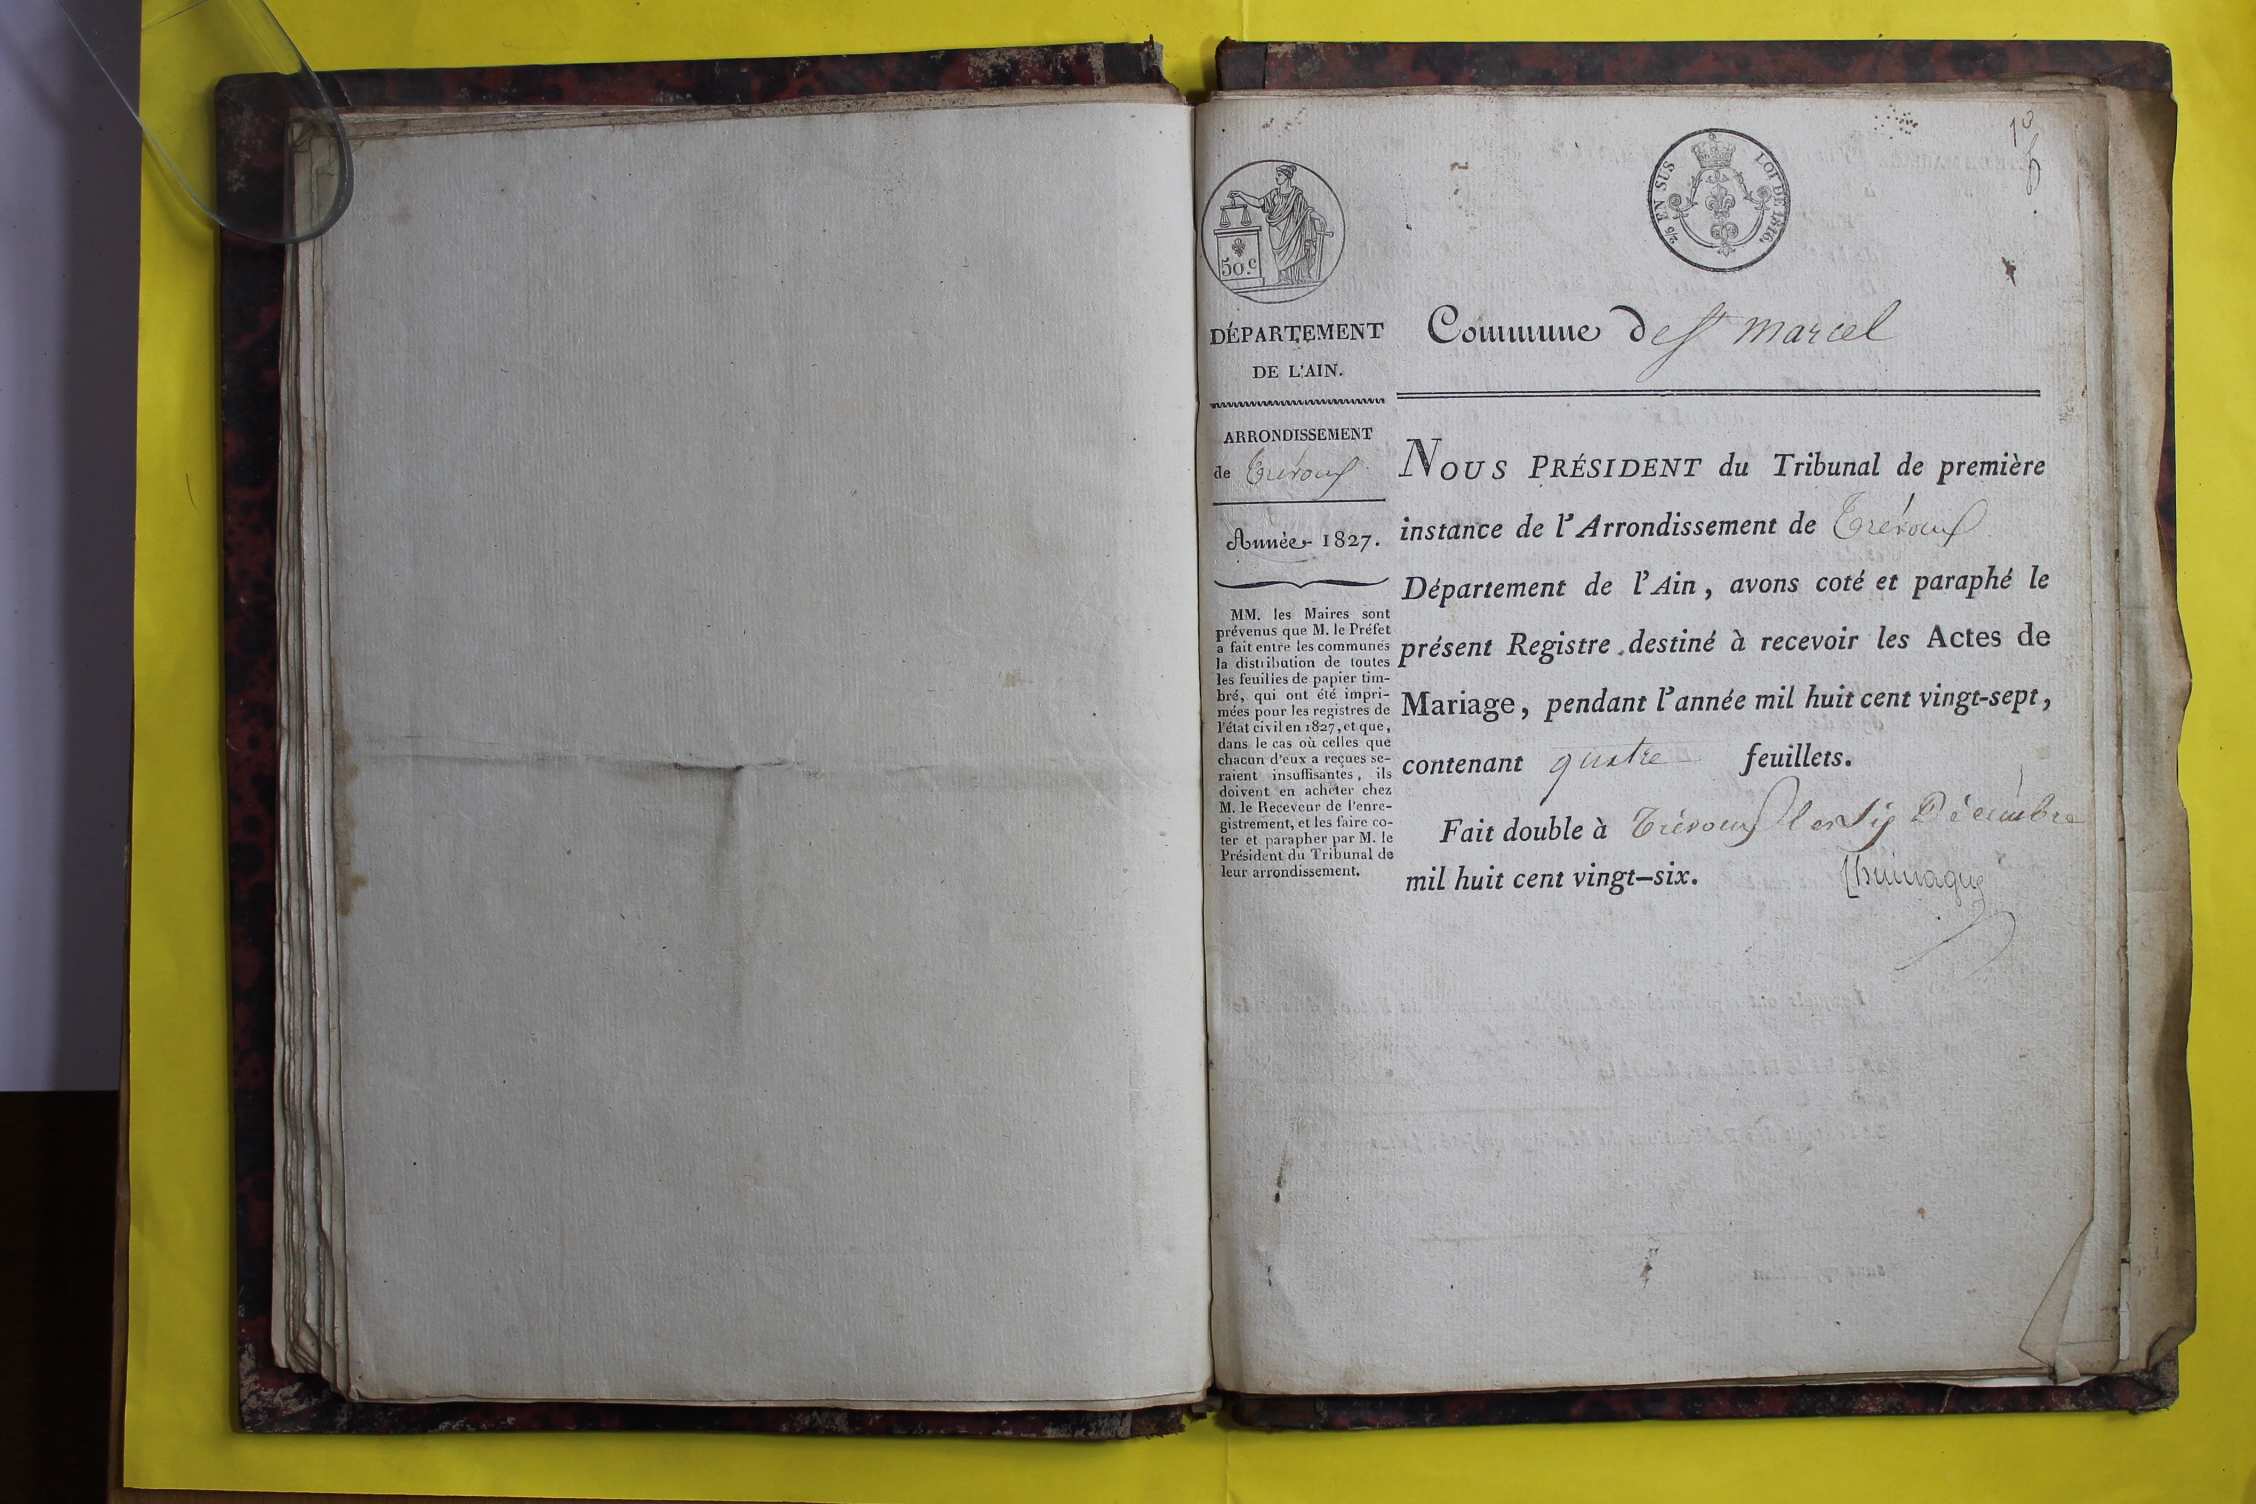 2/5 EN SUS LOI DE 1816.
50.c
DÉPARTEMENT
DE L'AIN.
ARRONDISSEMENT
de Trévoux
Année 1827.
MM. les Maires sont
prévenus que M. le Préfet
a fait entre les communes
la distribution de toutes
les feuilles de papier tim-
bré, qui ont été impri-
mées pour les registres de
l'état civil en 1827, et que,
dans le cas où celles que
chacun d'eux a reçues se-
raient insuffisantes, ils
doivent en acheter chez
M. le Receveur de l'enre-
gistrement, et les faire co-
ter et parapher par M. le
Président du Tribunal de
leur arrondissement.
Commune de St marcel
NOUS PRÉSIDENT du Tribunal de première
instance de l'Arrondissement de Trévoux
Département de l'Ain, avons coté et paraphé le
présent Registre destiné à recevoir les Actes de
Mariage, pendant l'année mil huit cent vingt-sept,
contenant quatre feuillets.
Fait double à Trévoux Décembre
mil huit cent vingt-six.